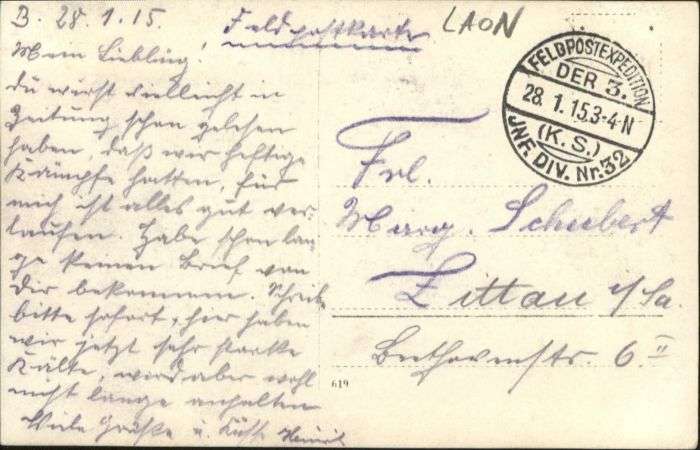 B. 28.1.15. Feldpostkarte
LAON
Mein Liebling!
du wirst vielleicht in
Zeitung schon gelesen
haben, daß wir heftige
Kämpfe hatten, für
mich ist alles gut ver-
laufen. Habe schon lan-
ge keinen Brief von
Dir bekommen. Schreibe
bitte sofort, hier haben
wir jetzt sehr starke
Kälte, wird aber wohl
nicht lange anhalten
Viele Grüße u. Küsse
FELDPOSTEXPEDITION
DER 3.
28. 1. 15. 3-4 N
(K. S.)
JNF. DIV. Nr. 32
Frl.
Marg. Schubert
Zittau i/Sa.
Beethovenstr. 6 II
619